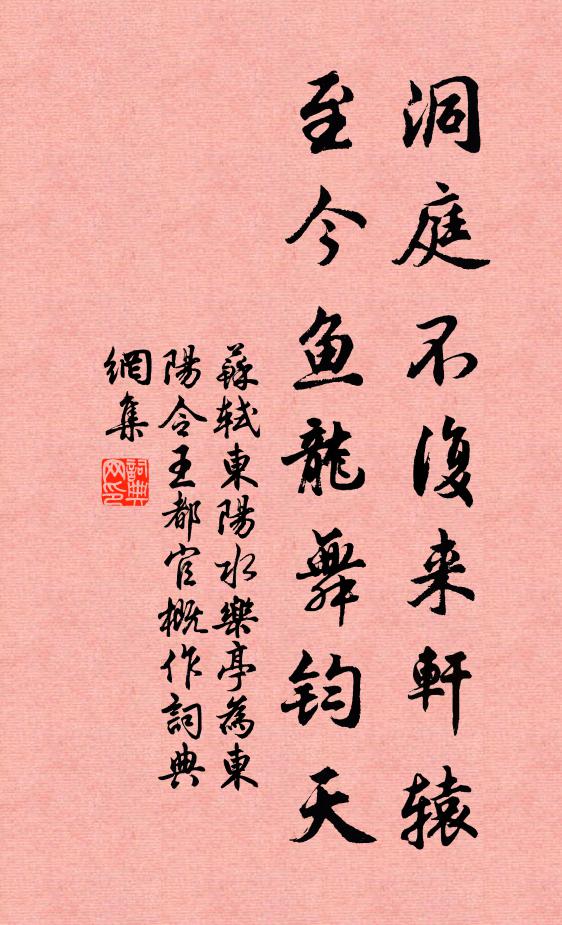 洞庭不復来軒辕
至今鱼龍舞钧天
蘇轼東陽水樂亭為東
陽令王都官概作詞典
網集
詞典网印